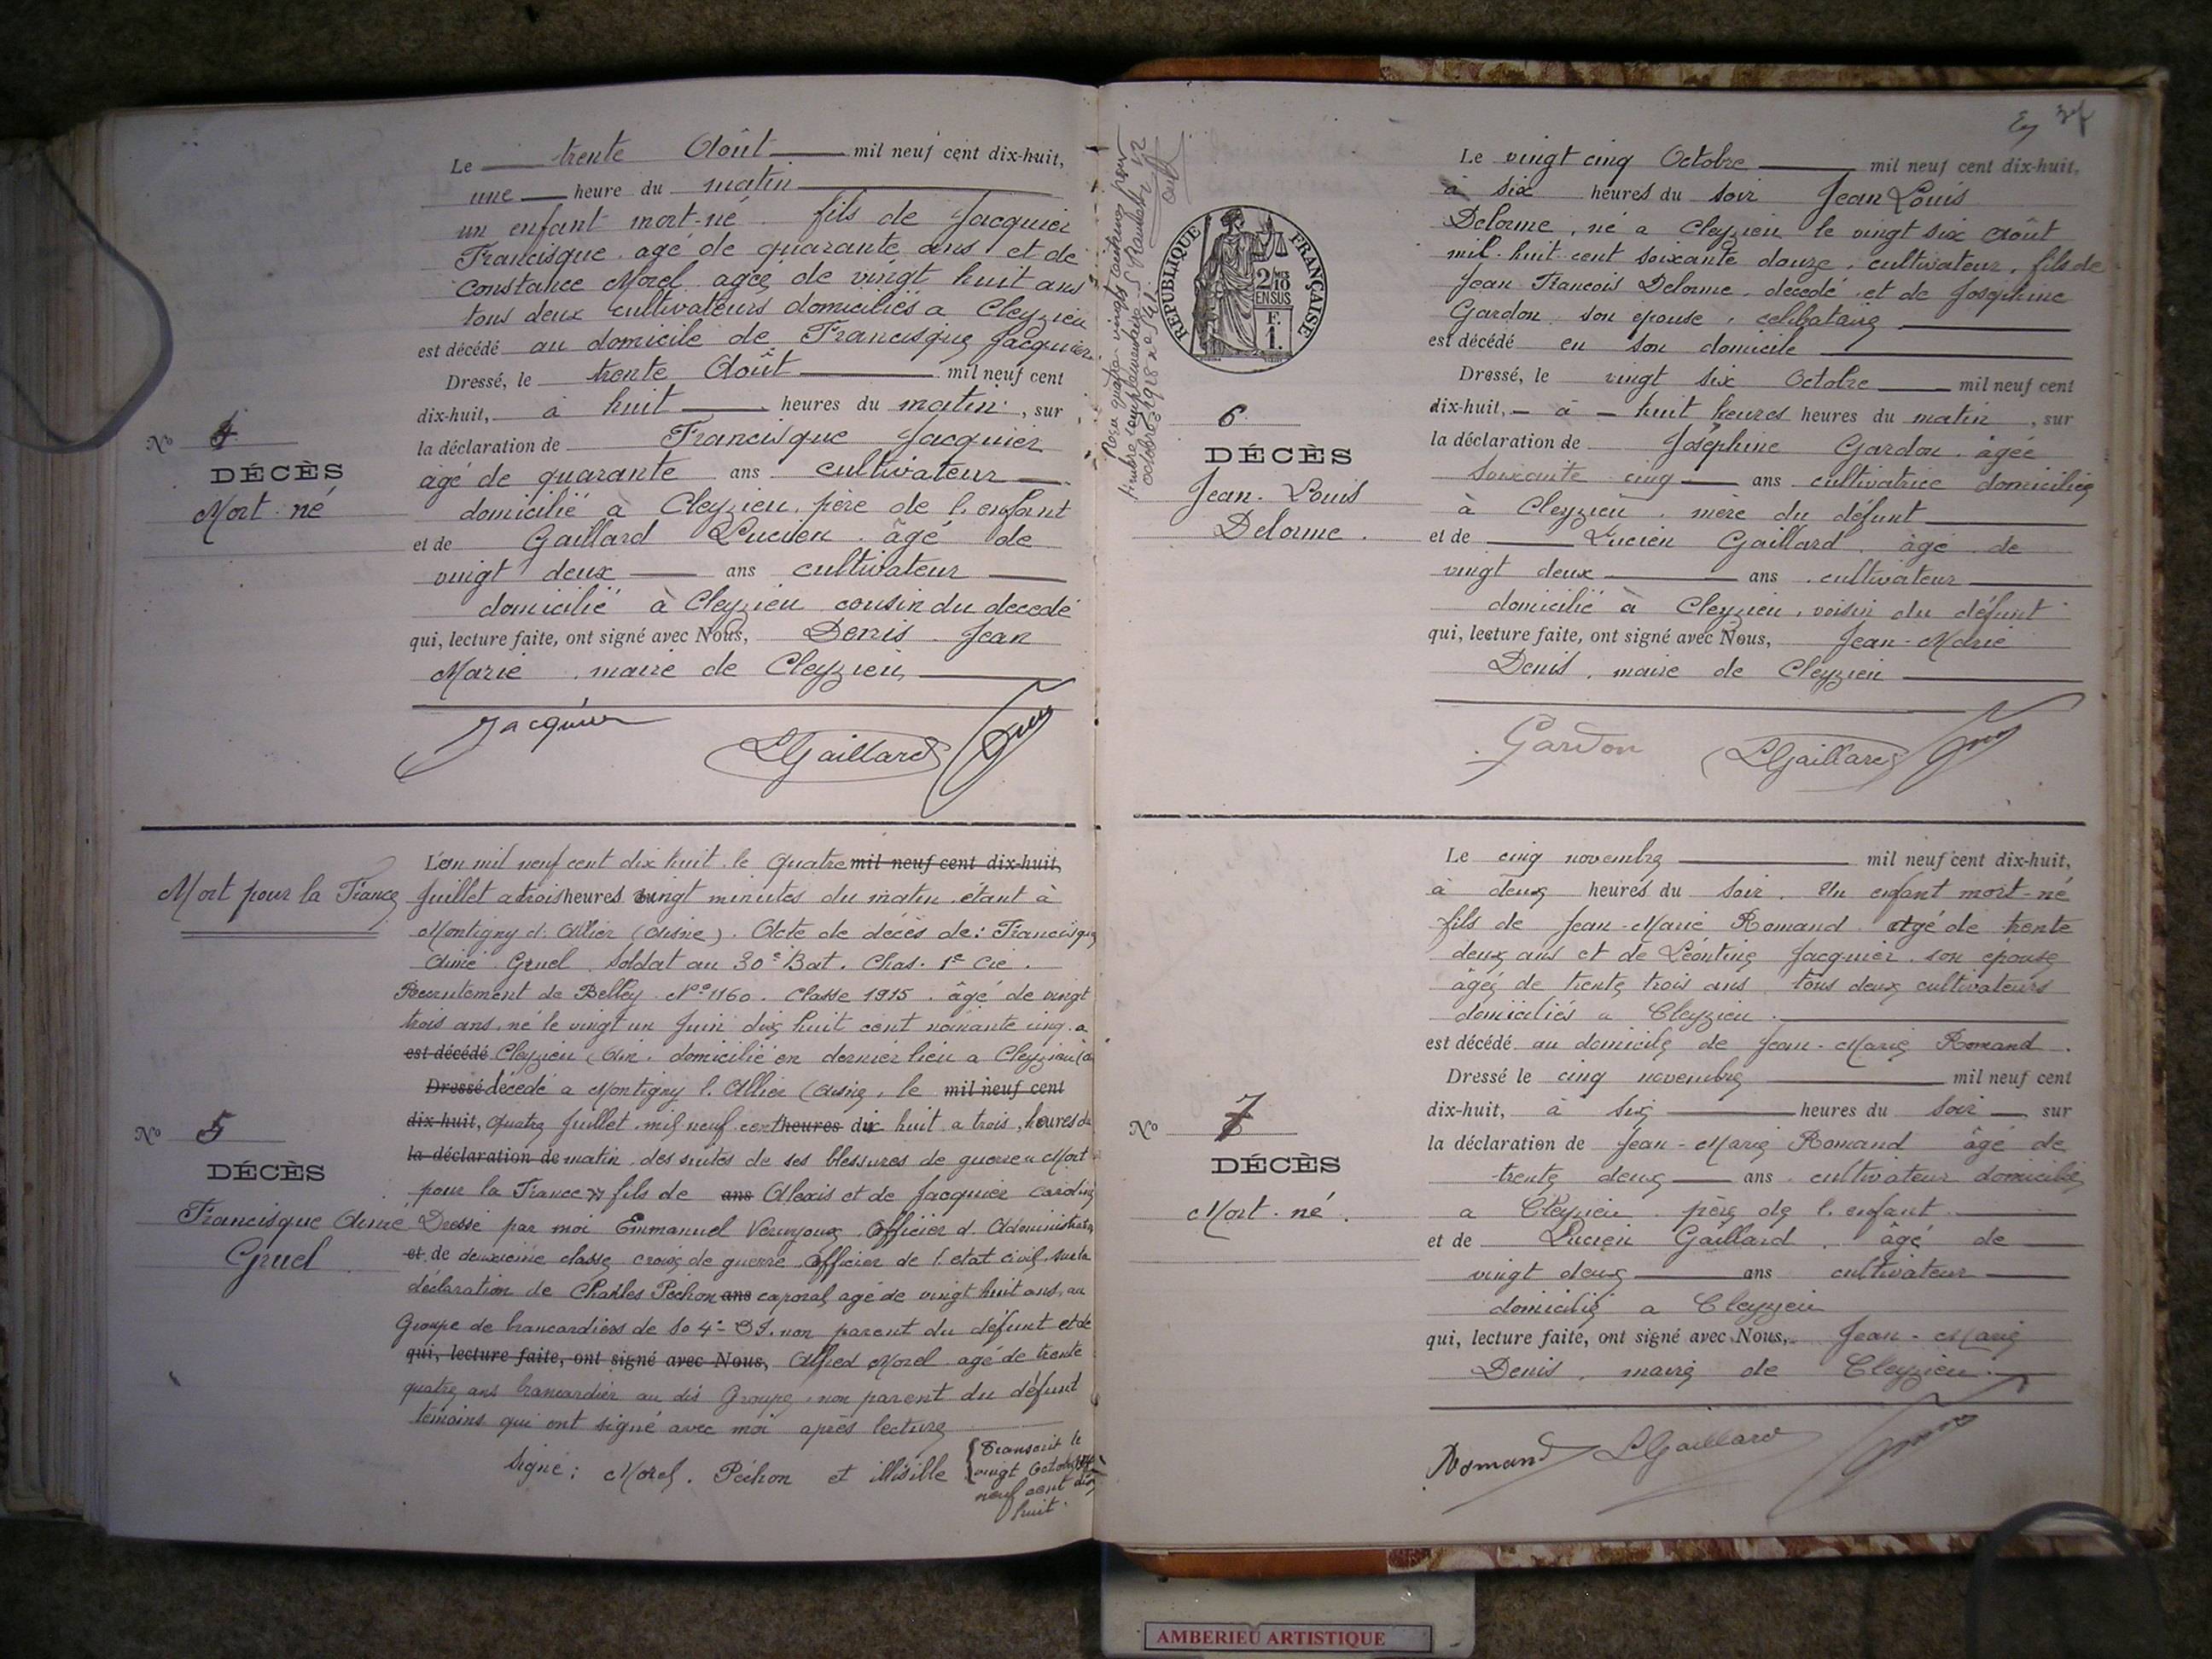 Le trente Août mil neuf cent dix-huit,
une heure du matin
un enfant mort-né. fils de Jacquier
Francisque agé de quarante ans et de
Constance Morel agée de vingt huit ans
tous deux cultivateurs domiciliés a Cleyzieu
est décédé au domicile de Francisque Jacquier
Dressé, le trente Août mil neuf cent
dix-huit, à huit heures du matin, sur
la déclaration de Francisque Jacquier
âgé de quarante ans cultivateur
domicilié à Cleyzieu, père de l'enfant
et de Gaillard Lucien. âgé de
vingt deux ans cultivateur
domicilié à Cleyzieu cousin du decedé
qui, lecture faite, ont signé avec Nous, Denis Jean
Marie, maire de Cleyzieu,
Jacquier LGaillard
No 4
DÉCÈS
Mort-né
L'an mil neuf cent dix huit le Quatre mil neuf cent dix-huit,
Juillet a trois heures vingt minutes du matin étant à
Montigny l. Allier (Aisne). Acte de décès de: Francisque
Aimé Gruel Soldat au 30e Bat. Chas. 1e Cie.
Recrutement de Belley No 1160. Classe 1915. âgé de vingt
trois ans, né le vingt un Juin dix huit cent nonante cinq a
est décédé Cleyzieu (Ain. domicilié en dernier lieu a Cleyzieu (a
Dressé décédé a Montigny l. Allier (Aisne, le mil neuf cent
dix-huit, quatre Juillet mil neuf cent heures dix huit a trois, heures du
la déclaration de matin des suites de ses blessures de guerre « Mort
pour la France » fils de ans Alexis et de Jacquier Caroline
Dressé par moi Emmanuel Officier d. Administration
et de deuxième classe croix de guerre Officier de l'etat civil, sur la
déclaration de Charles Péchon ans caporal agé de vingt huit ans, au
Groupe de brancardiers de la 4e D.I. non parent du défunt et de
qui, lecture faite, ont signé avec Nous, Alfred Morel agé de trente
quatre ans brancardier au dis Groupe, non parent du défunt
témoins qui ont signé avec moi après lecture
Signé: Morel. Péchon et illisible
Transcrit le
vingt Octobre mil
neuf cent dix
huit.
Mort pour la France
No 5
DÉCÈS
Francisque Aimé
Gruel
37
Le vingt cinq Octobre mil neuf cent dix-huit,
à six heures du soir Jean Louis
Delorme, né a Cleyzieu le vingt six Août
mil huit cent soixante douze, cultivateur, fils de
Jean Francois Delorme, decedé et de Joséphine
Gardon son epouse, celibataire
est décédé en son domicile
Dressé, le vingt six Octobre mil neuf cent
dix-huit, à huit heures heures du matin, sur
la déclaration de Joséphine Gardon, âgée
soixante cinq ans cultivatrice domiciliée
à Cleyzieu, mère du défunt
et de Lucien Gaillard âgé de
vingt deux ans cultivateur
domicilié à Cleyzieu, voisin du défunt
qui, lecture faite, ont signé avec Nous, Jean-Marie
Denis, maire de Cleyzieu
Gardon LGaillard
RÉPUBLIQUE FRANÇAISE
2/10
EN SUS
F.
1.
6
DÉCÈS
Jean-Louis
Delorme.
Le cinq novembre mil neuf cent dix-huit,
à deux heures du soir. Un enfant mort-né
fils de Jean-Marie Romand agé de trente
deux ans et de Léontine Jacquier son épouse
âgée de trente trois ans tous deux cultivateurs
domiciliés a Cleyzieu.
est décédé au domicile de Jean-Marie Romand.
Dressé le cinq novembre mil neuf cent
dix-huit, à six heures du soir sur
la déclaration de Jean-Marie Romand âgé de
trente deux ans cultivateur domicilié
a Cleyzieu père de l'enfant
et de Lucien Gaillard, âgé de
vingt deux ans cultivateur
domicilié a Cleyzieu
qui, lecture faite, ont signé avec Nous, Jean-Marie
Denis, maire de Cleyzieu.
Romand LGaillard
No 7
DÉCÈS
Mort-né.
AMBERIEU ARTISTIQUE